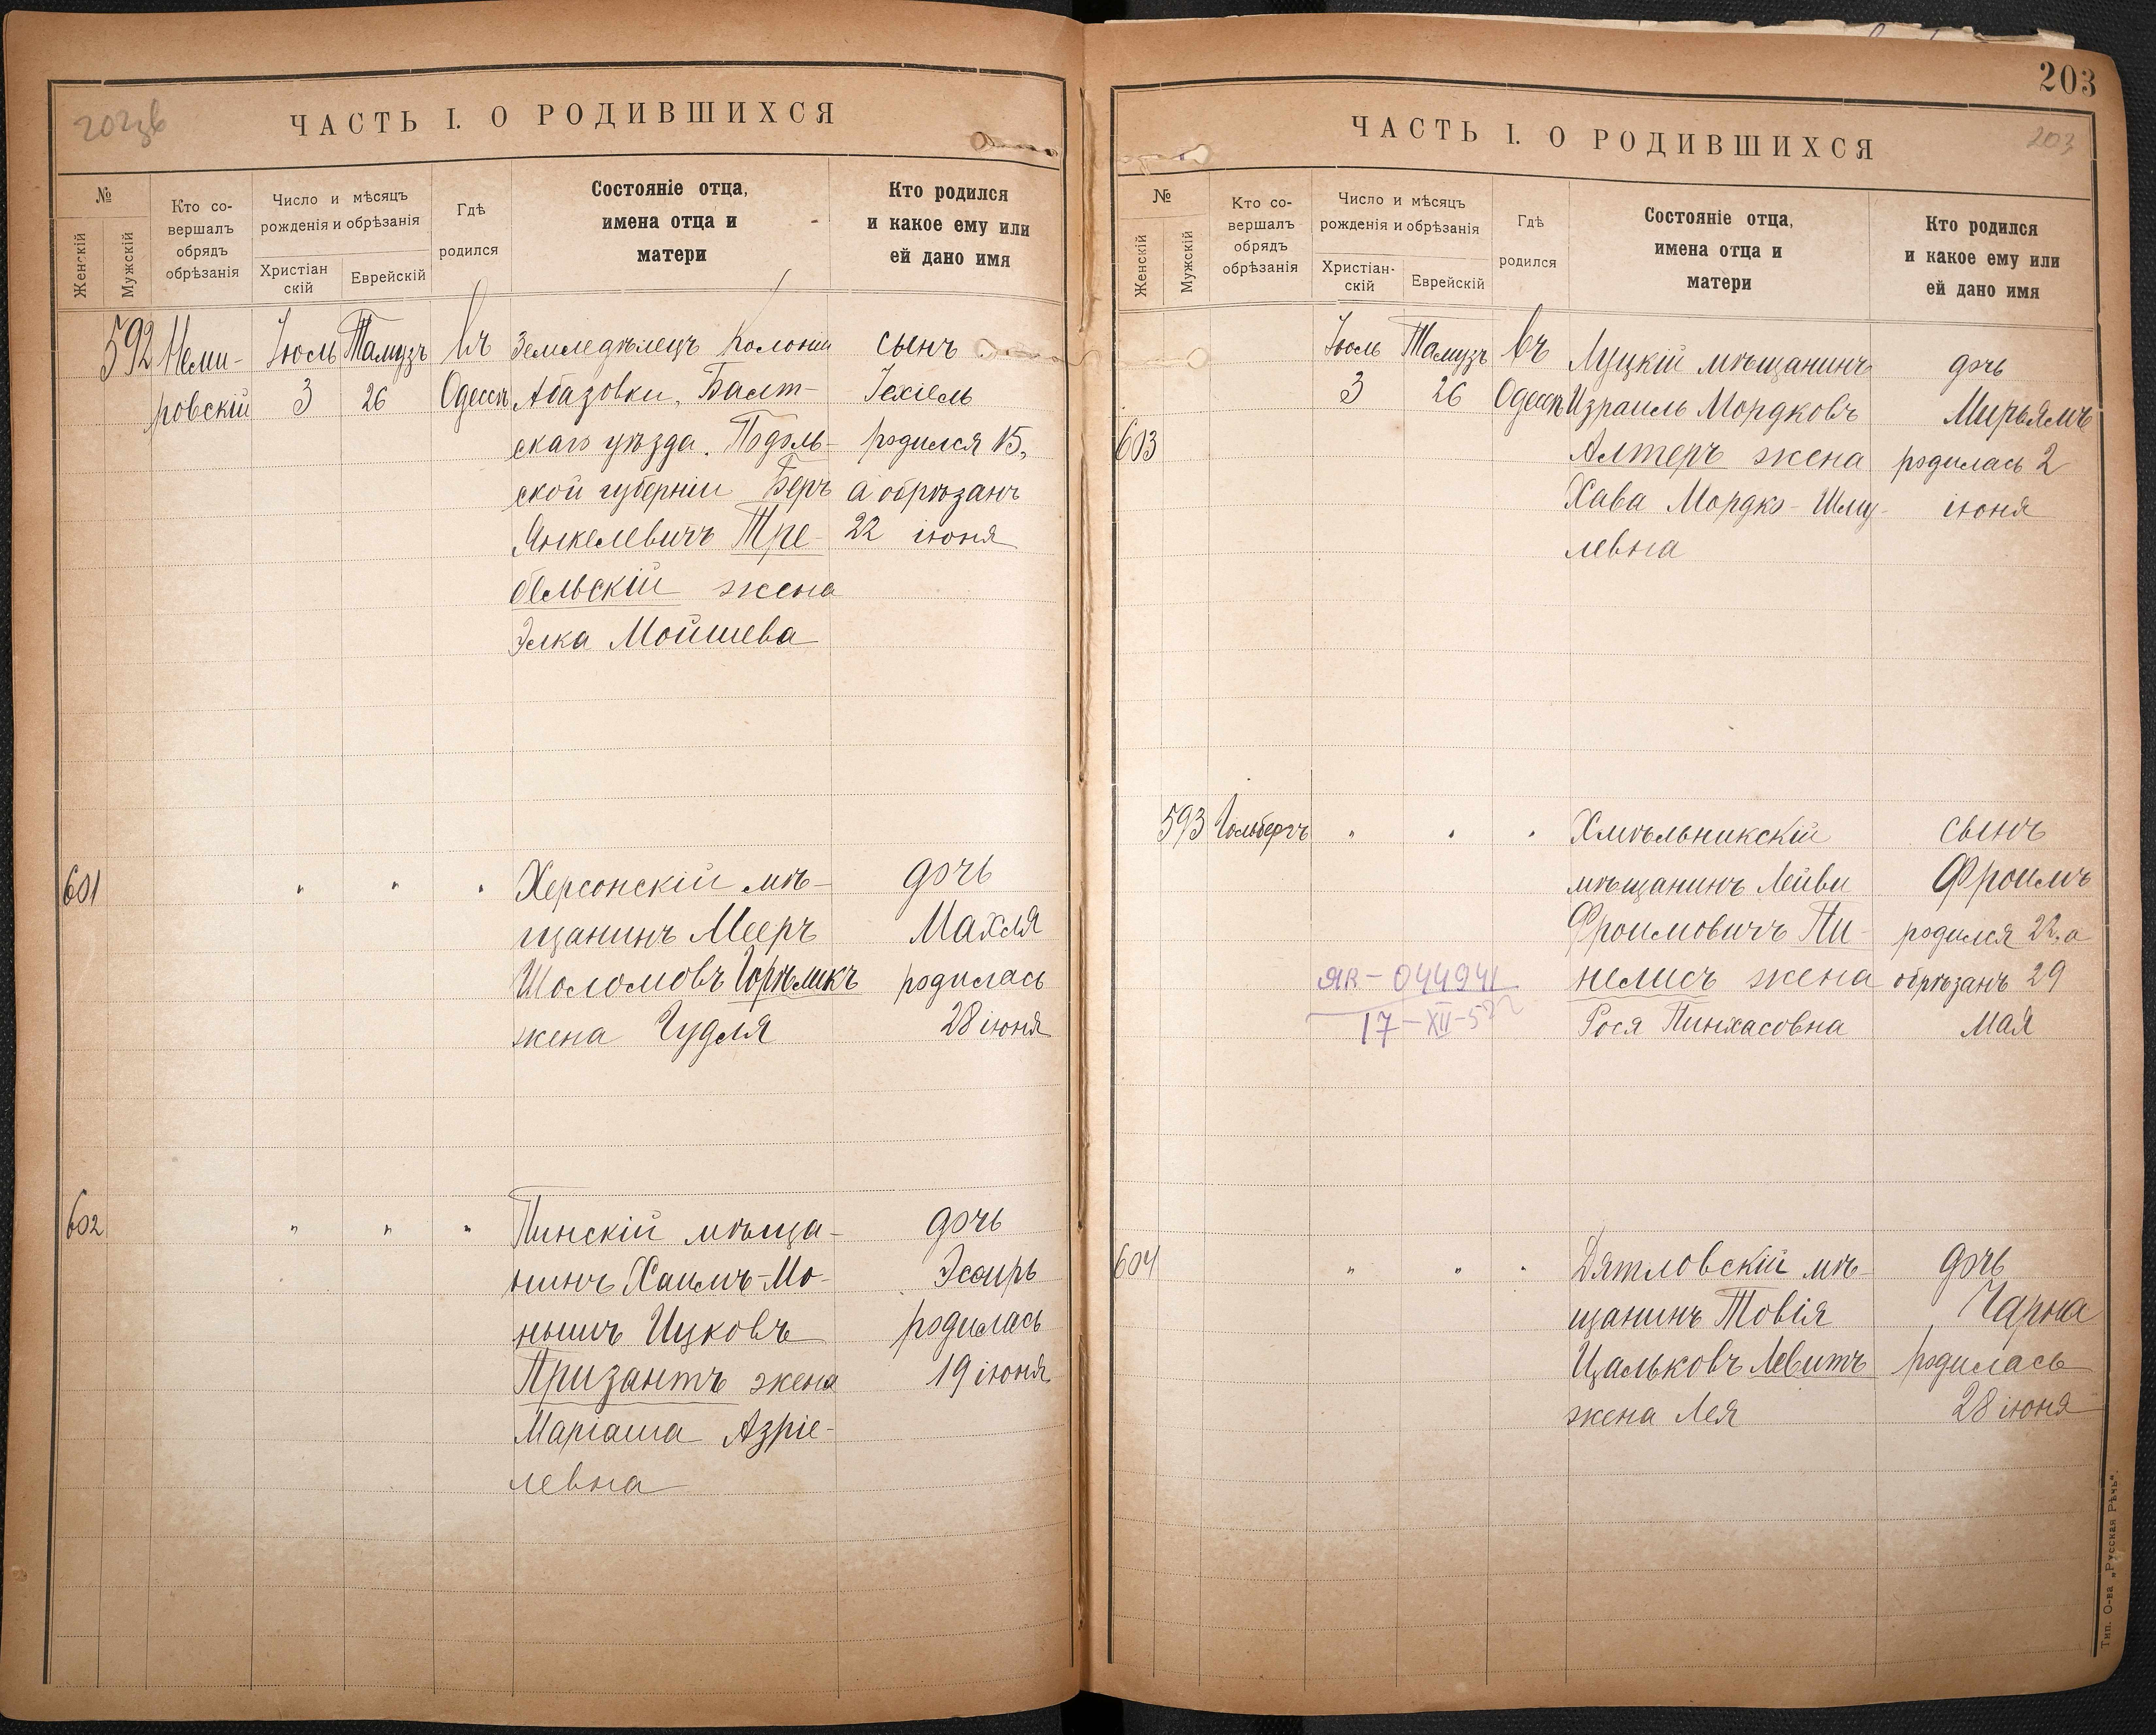 202 зв
ЧАСТЬ I. О РОДИВШИХСЯ
№
Женскій
Мужскій
Кто со-
вершалъ
обрядъ
обрѣзанія
Число и мѣсяцъ
рожденія и обрѣзанія
Христіан
скій
Еврейскій
Гдѣ
родился
Состояніе отца,
имена отца и
матери
Кто родился
и какое ему или
ей дано имя
592 Неми- Іюль Тамузъ Въ Земледѣлецъ Колоніи сынъ
ровскій 3 26 Одессѣ Абазовки, Балт- Іехіель
скаго уѣзда. Подоль- родился 15,
ской губерніи Беръ а обрѣзанъ
Янкелевичъ Тре- 22 іюня
бельскій жена
Элка Мойшева
601 " " " Херсонскій мѣ- дочь
щанинъ Мееръ Махля
Шоломовъ Горѣликъ родилась
жена Гудля 28 іюня
602 " " " Пинскій мѣща- дочь
нинъ Хаимъ-Мо- Эсѳирь
нышъ Ицковъ родилась
Призантъ жена 19 іюня
Маріаша Азріе-
левна
203
203
ЧАСТЬ I. О РОДИВШИХСЯ
№
Женскій
Мужскій
Кто со-
вершалъ
обрядъ
обрѣзанія
Число и мѣсяцъ
рожденія и обрѣзанія
Христіан-
скій
Еврейскій
Гдѣ
родился
Состояніе отца,
имена отца и
матери
Кто родился
и какое ему или
ей дано имя
Іюль Тамузъ Въ Луцкій мѣщанинъ дочь
3 26 Одессѣ Израиль Мордковъ Мирьямъ
603 Алтеръ жена родилась 2
Хава Мордко-Шму- іюня
левна
593 Гольбергъ " " " Хмѣльникскій сынъ
мѣщанинъ Лейви Фроимъ
Фроимовичъ Пи- родился 22, а
ЯК-044941 нелисъ жена обрѣзанъ 29
17-XII-52 Рося Пинхасовна мая
604 " " " Дятловскій мѣ- дочь
щанинъ Товія Чарна
Цальковъ Левитъ родилась
жена Лея 28 іюня
Тип. О-ва „Русская Рѣчь".